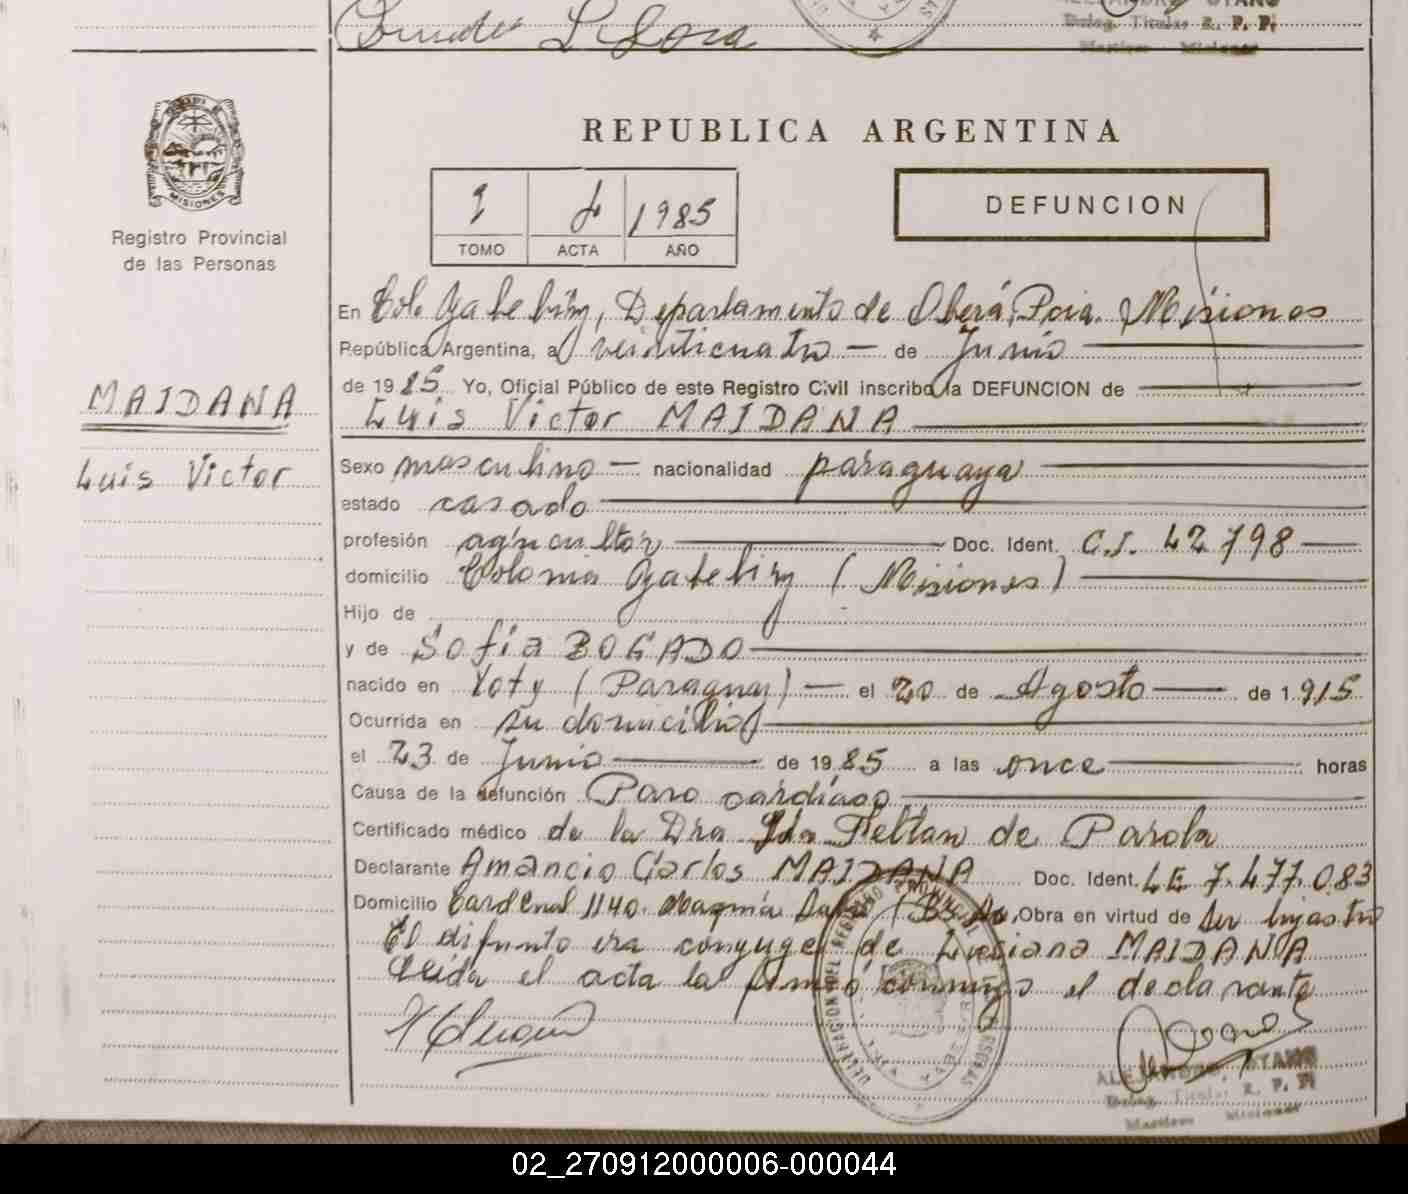 REPUBLICA ARGENTINA
MISIONES
Registro Provincial
de las Personas
1985
TOMO ACTA AÑO
DEFUNCION
En Col. Yabebiry, Departamento de Oberá, Pcia. Misiones
República Argentina, a veinticuatro — de Junio
de 1985 Yo, Oficial Público de este Registro Civil inscribo la DEFUNCION de
Luis Victor MAIDANA
MAIDANA
Luis Victor
Sexo masculino — nacionalidad paraguaya
estado casado
profesión agricultor Doc. Ident. C.I. 42798
domicilio Colonia Yabebiry (Misiones)
Hijo de
y de Sofía BOGADO
nacido en Yoty (Paraguay) — el 20 de Agosto — de 1.915
Ocurrida en su domicilio
el 23 de Junio de 1985 a las once horas
Causa de la defunción Paro cardíaco
Certificado médico de la Dra Feltan de Parola
Declarante Amancio Carlos MAIDANA Doc. Ident. LE 7.477.083
Domicilio Cardenal 1140. (Bs As, Obra en virtud de ser hijastro
El difunto era conyuge de Luciana MAIDANA
Leida el acta la firmó conmigo el declarante
ALEJANDRO OYANO
Deleg. Titular R. P. P.
Martires Misiones
02_270912000006-000044